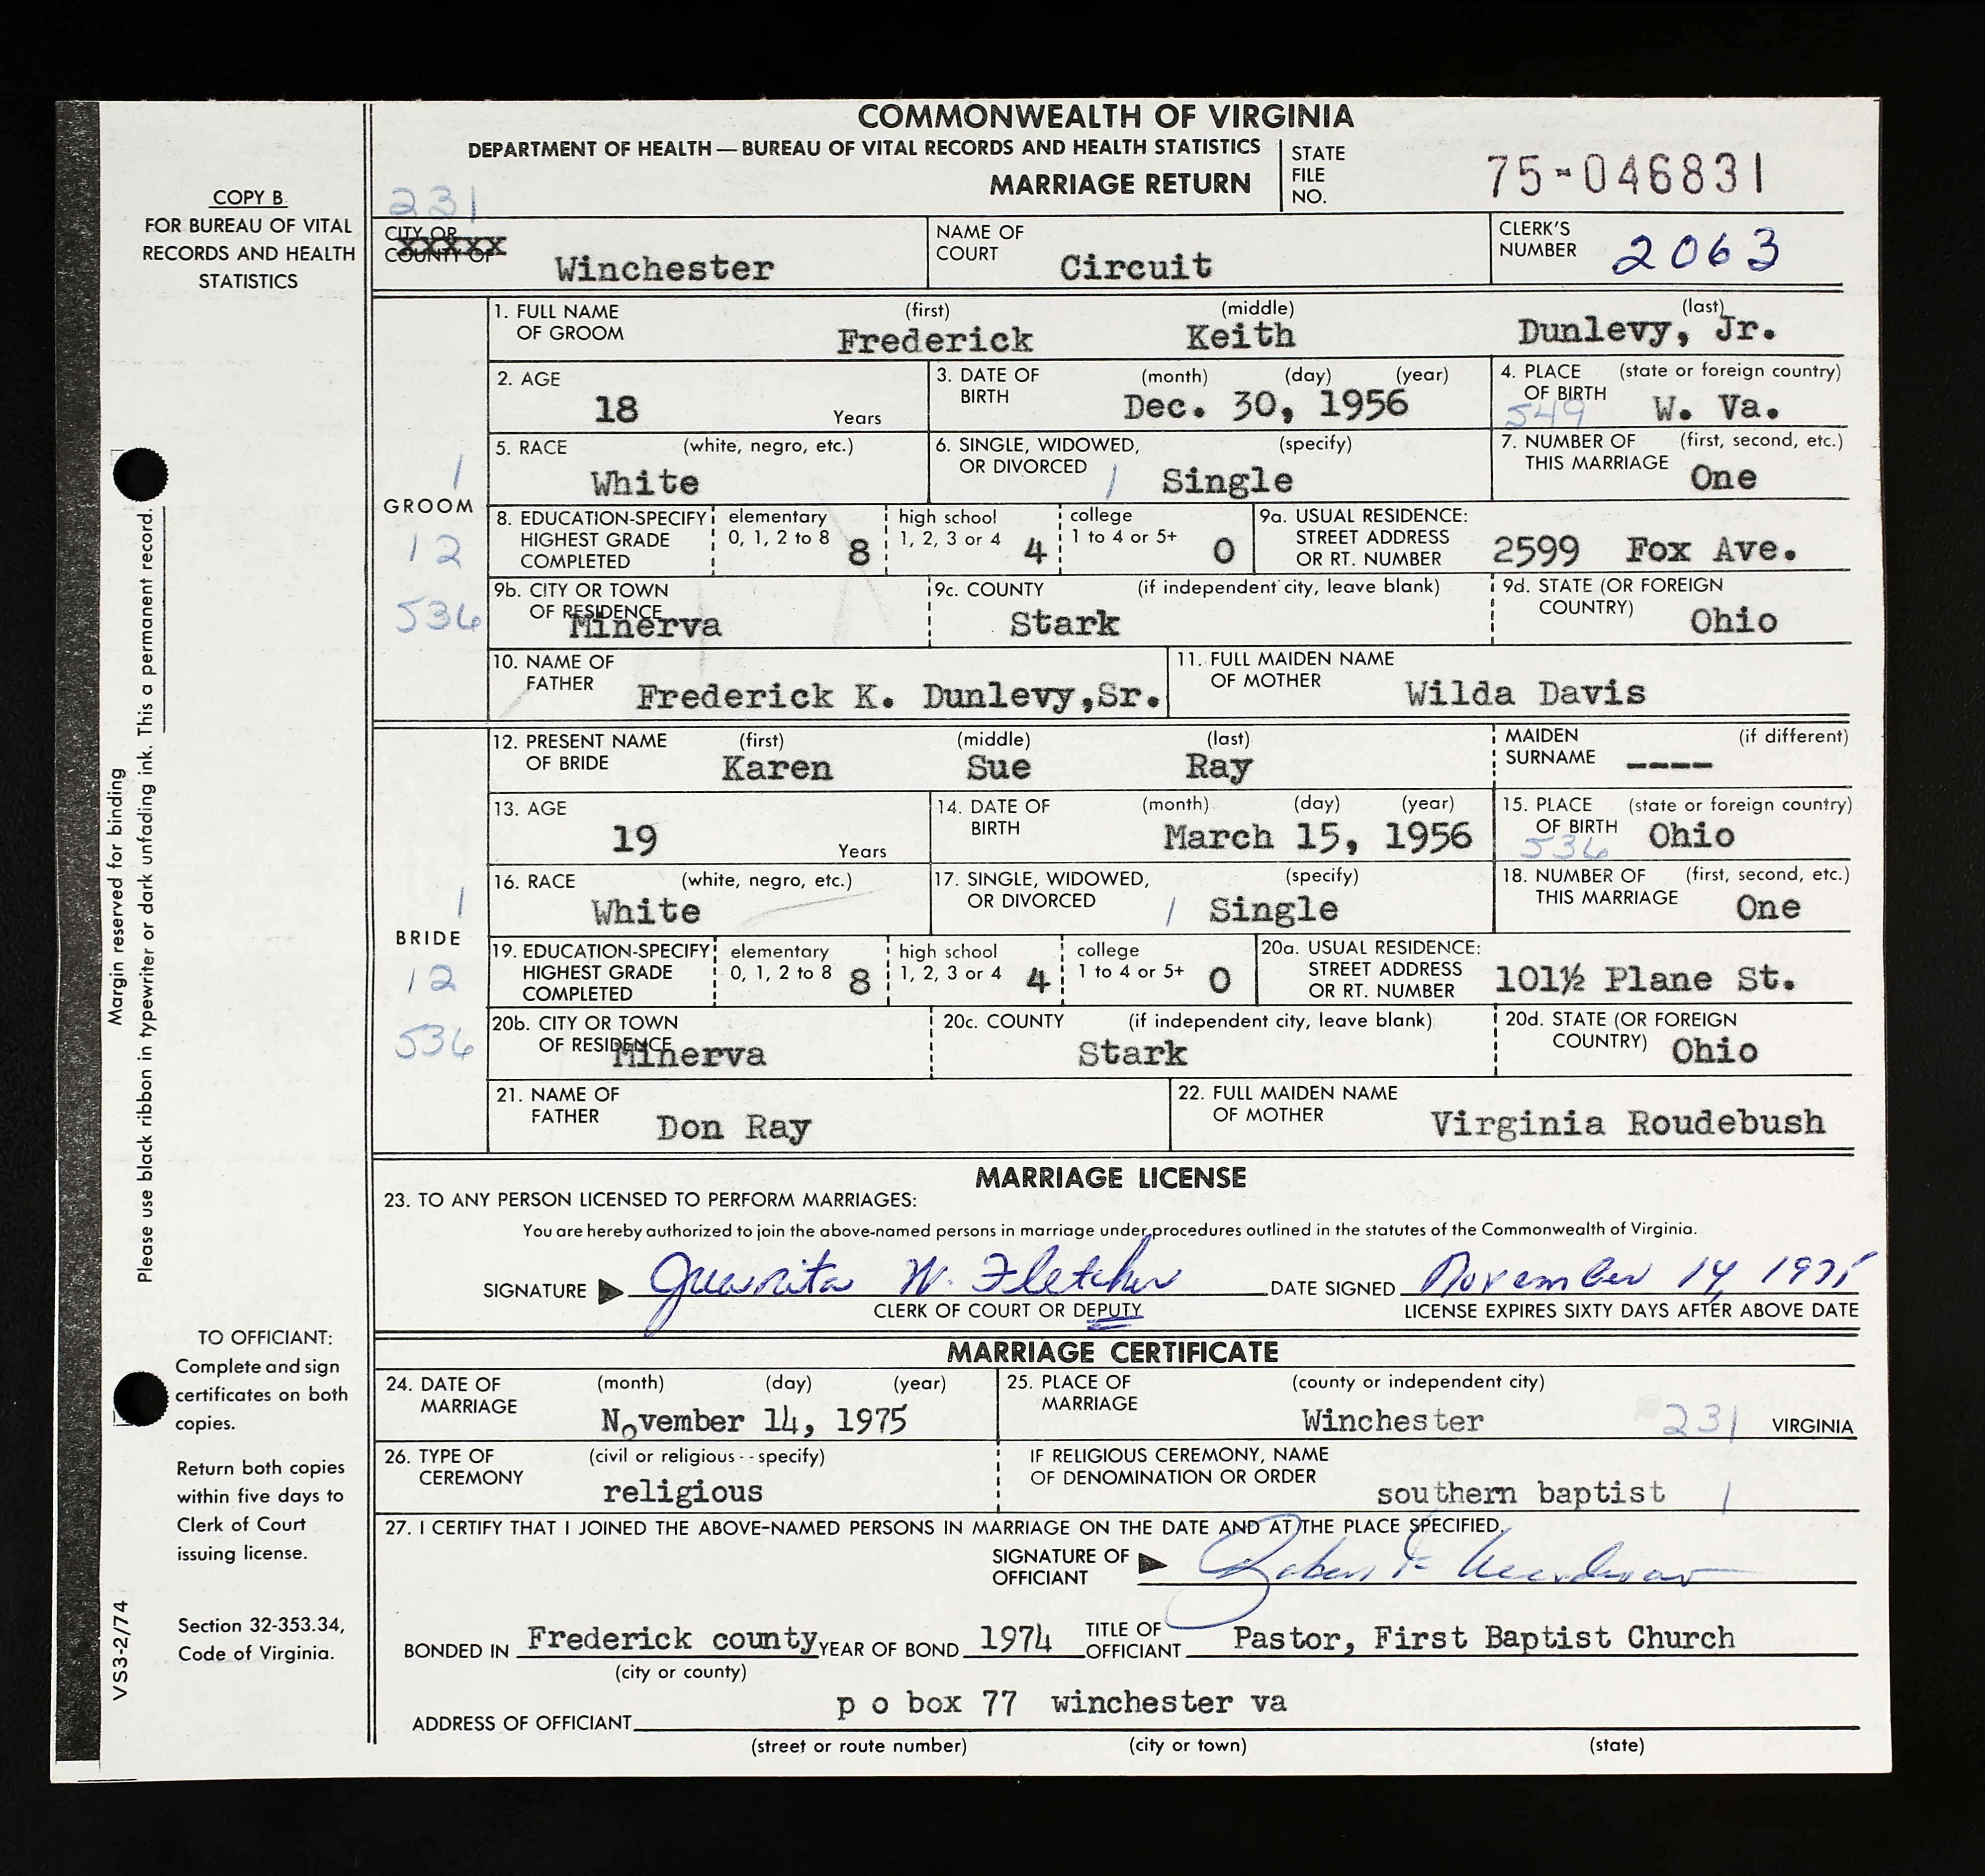 COMMONWEALTH OF VIRGINIA
DEPARTMENT OF HEALTH — BUREAU OF VITAL RECORDS AND HEALTH STATISTICS
MARRIAGE RETURN
STATE FILE NO. 75-046831
COPY B
FOR BUREAU OF VITAL
RECORDS AND HEALTH
STATISTICS
231
CITY OR COUNTY OF xxxxx Winchester
NAME OF COURT Circuit
CLERK'S NUMBER 2063
GROOM
1
12
536
1. FULL NAME OF GROOM (first) Frederick (middle) Keith (last) Dunlevy, Jr.
2. AGE 18 Years
3. DATE OF BIRTH (month) (day) (year) Dec. 30, 1956
4. PLACE OF BIRTH (state or foreign country) 549 W. Va.
5. RACE (white, negro, etc.) White
6. SINGLE, WIDOWED, OR DIVORCED (specify) 1 Single
7. NUMBER OF THIS MARRIAGE (first, second, etc.) One
8. EDUCATION-SPECIFY HIGHEST GRADE COMPLETED elementary 0, 1, 2 to 8 8 high school 1, 2, 3 or 4 4 college 1 to 4 or 5+ 0
9a. USUAL RESIDENCE: STREET ADDRESS OR RT. NUMBER 2599 Fox Ave.
9b. CITY OR TOWN OF RESIDENCE Minerva
9c. COUNTY (if independent city, leave blank) Stark
9d. STATE (OR FOREIGN COUNTRY) Ohio
10. NAME OF FATHER Frederick K. Dunlevy,Sr.
11. FULL MAIDEN NAME OF MOTHER Wilda Davis
BRIDE
1
12
536
12. PRESENT NAME OF BRIDE (first) Karen (middle) Sue (last) Ray
MAIDEN SURNAME (if different) ----
13. AGE 19 Years
14. DATE OF BIRTH (month) (day) (year) March 15, 1956
15. PLACE OF BIRTH (state or foreign country) 536 Ohio
16. RACE (white, negro, etc.) White
17. SINGLE, WIDOWED, OR DIVORCED (specify) 1 Single
18. NUMBER OF THIS MARRIAGE (first, second, etc.) One
19. EDUCATION-SPECIFY HIGHEST GRADE COMPLETED elementary 0, 1, 2 to 8 8 high school 1, 2, 3 or 4 4 college 1 to 4 or 5+ 0
20a. USUAL RESIDENCE: STREET ADDRESS OR RT. NUMBER 101½ Plane St.
20b. CITY OR TOWN OF RESIDENCE Minerva
20c. COUNTY (if independent city, leave blank) Stark
20d. STATE (OR FOREIGN COUNTRY) Ohio
21. NAME OF FATHER Don Ray
22. FULL MAIDEN NAME OF MOTHER Virginia Roudebush
MARRIAGE LICENSE
23. TO ANY PERSON LICENSED TO PERFORM MARRIAGES:
You are hereby authorized to join the above-named persons in marriage under procedures outlined in the statutes of the Commonwealth of Virginia.
SIGNATURE Juanita W. Fletcher DATE SIGNED November 14, 1975
CLERK OF COURT OR DEPUTY LICENSE EXPIRES SIXTY DAYS AFTER ABOVE DATE
MARRIAGE CERTIFICATE
24. DATE OF MARRIAGE (month) (day) (year) November 14, 1975
25. PLACE OF MARRIAGE (county or independent city) Winchester 231 VIRGINIA
26. TYPE OF CEREMONY (civil or religious--specify) religious
IF RELIGIOUS CEREMONY, NAME OF DENOMINATION OR ORDER southern baptist 1
27. I CERTIFY THAT I JOINED THE ABOVE-NAMED PERSONS IN MARRIAGE ON THE DATE AND AT THE PLACE SPECIFIED.
SIGNATURE OF OFFICIANT
BONDED IN Frederick county YEAR OF BOND 1974 TITLE OF OFFICIANT Pastor, First Baptist Church
(city or county)
ADDRESS OF OFFICIANT p o box 77 winchester va
(street or route number) (city or town) (state)
Margin reserved for binding
Please use black ribbon in typewriter or dark unfading ink. This a permanent record.
TO OFFICIANT:
Complete and sign
certificates on both
copies.
Return both copies
within five days to
Clerk of Court
issuing license.
Section 32-353.34,
Code of Virginia.
VS3-2/74